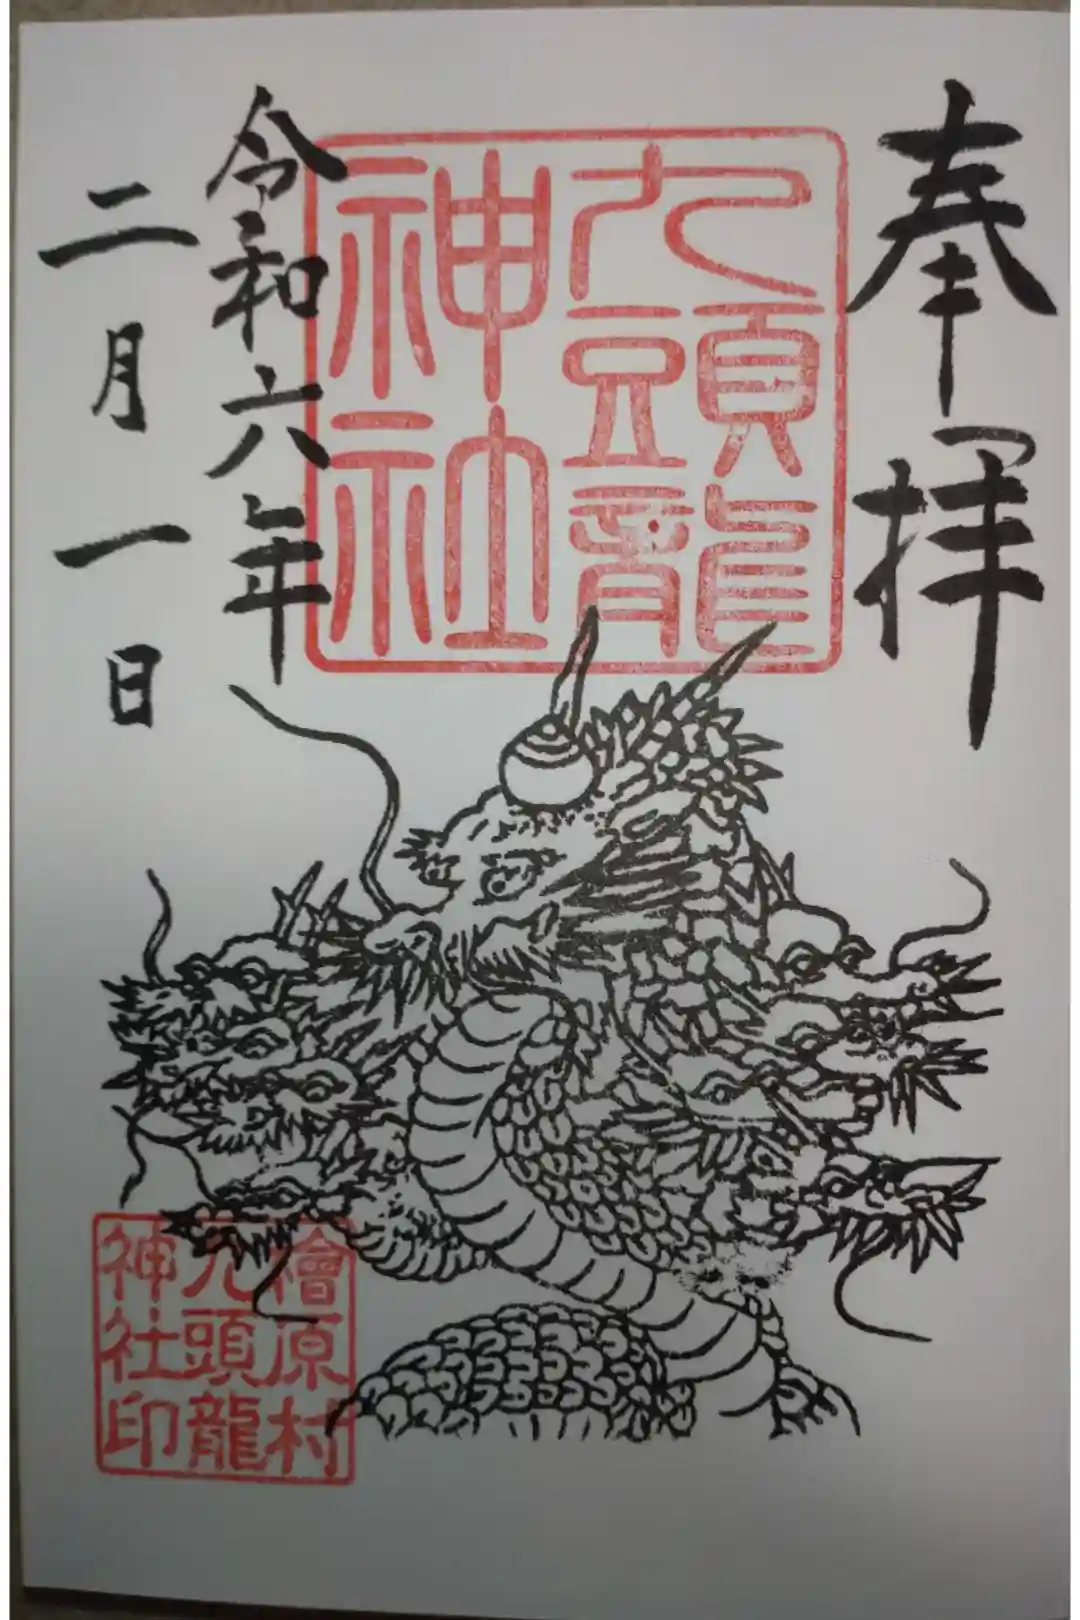 奉拝
九頭龍
神社
令和六年
二月一日
檜原村
九頭龍
神社印